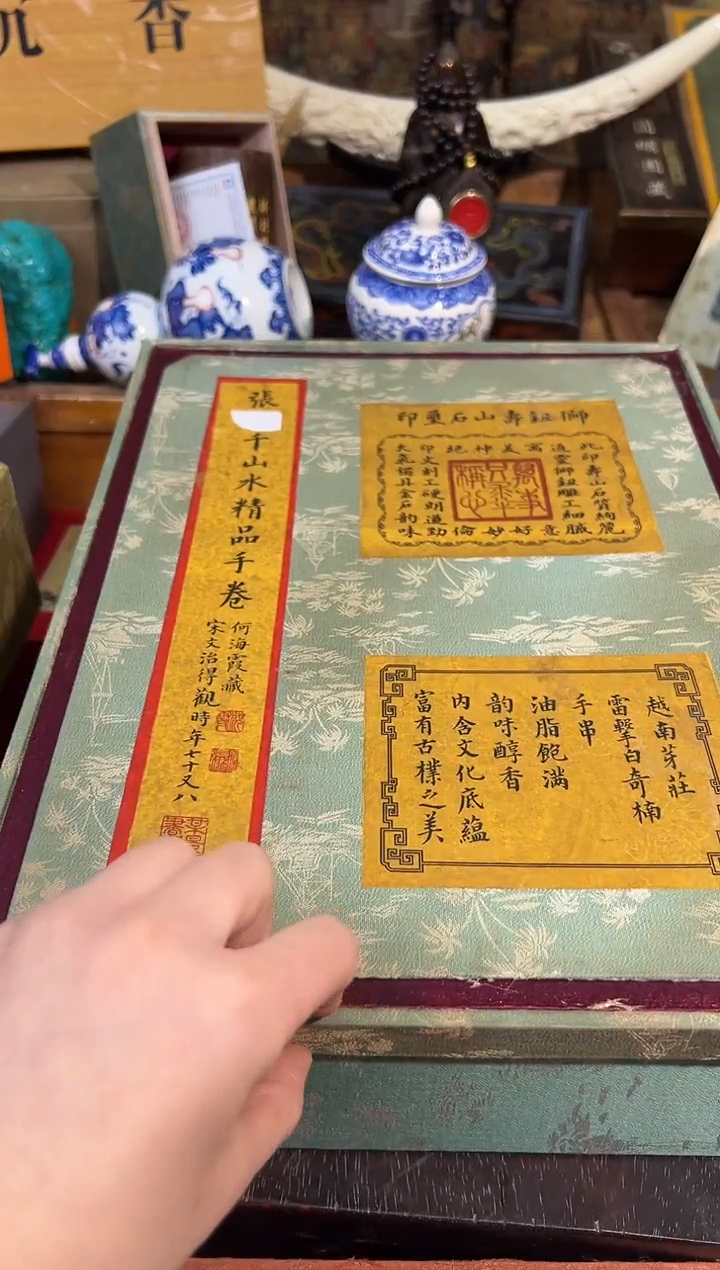 香
圓明園藏
張
千山水精品手卷
何海霞藏
宋文治得觀時年七十又八
獅鈕壽山石璽印
此印壽山石質絢麗
通靈獅鈕雕工細膩
寓意
美好
神妙
絕倫
印文刻工硬朗遒勁
大氣獨具金石韵味
越南芽莊
雷擊白奇楠
手串
油脂飽滿
韵味醇香
内含文化底蘊
富有古樸之美